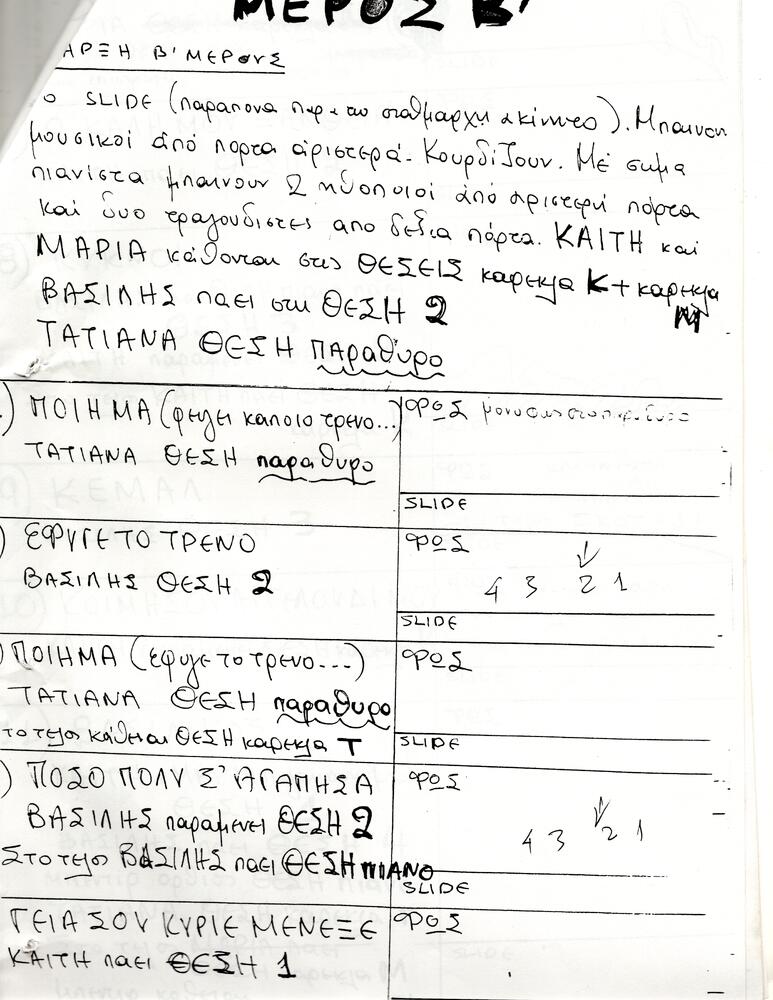 ΜΕΡΟΣ Β'
ΑΡΞΗ Β' ΜΕΡΟΥΣ
SLIDE (παραπονα του σταθμαρχη ακινητο). Μπαινουν
μουσικοί από πορτα αριστερά. Κουρδίζουν. Μέ σημα
πιανίστα μπαινουν 2 ηθοποιοί από αριστερή πόρτα
και δυο τραγουδιστες απο δεξια πόρτα. ΚΑΙΤΗ και
ΜΑΡΙΑ κάθονται στις ΘΕΣΕΙΣ καρεκλα Κ + καρεκλα
Μ
ΒΑΣΙΛΗΣ παει στη ΘΕΣΗ 2
ΤΑΤΙΑΝΑ ΘΕΣΗ ΠΑΡαθυρο
) ΠΟΙΗΜΑ (φευγει καποιο τρενο...)
ΦΩΣ μονο φως στο παραθυρο
ΤΑΤΙΑΝΑ ΘΕΣΗ παραθυρο
SLIDE
) ΕΦΥΓΕ ΤΟ ΤΡΕΝΟ
ΦΩΣ
ΒΑΣΙΛΗΣ ΘΕΣΗ 2
4 3 2 1
SLIDE
) ΠΟΙΗΜΑ (έφυγε το τρενο...)
ΦΩΣ
ΤΑΤΙΑΝΑ ΘΕΣΗ παραθυρο
το τελος κάθεται ΘΕΣΗ καρεκλα Τ
SLIDE
) ΠΟΣΟ ΠΟΛΥ Σ' ΑΓΑΠΗΣΑ
ΦΩΣ
ΒΑΣΙΛΗΣ παραμενει ΘΕΣΗ 2
4 3 2 1
Στο τελος ΒΑΣΙΛΗΣ παει ΘΕΣΗ ΠΙΑΝΟ
SLIDE
ΓΕΙΑ ΣΟΥ ΚΥΡΙΕ ΜΕΝΕΞΕ
ΦΩΣ
ΚΑΙΤΗ παει ΘΕΣΗ 1